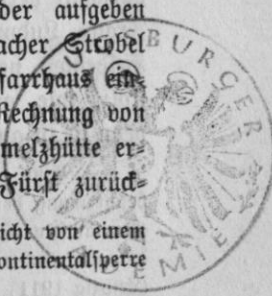 der aufgeben
acher Strobel
farrhaus ein-
Rechnung von
melzhütte er-
Fürst zurück-
icht von einem
ontinentalsperre
BURGER
DEMIE